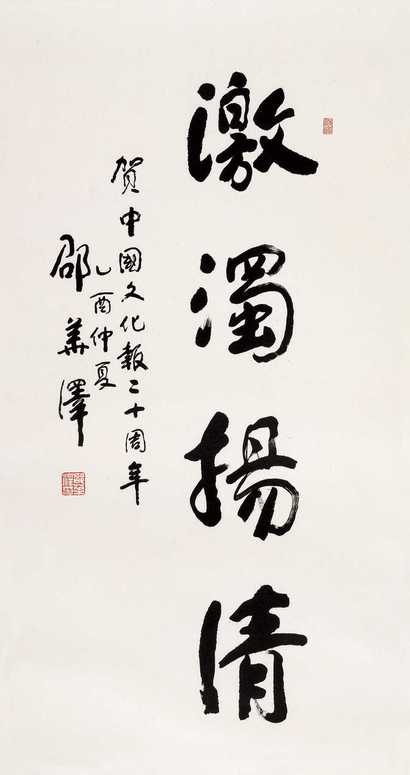 激濁揚清
賀中國文化報二十周年
乙酉仲夏
邵華澤